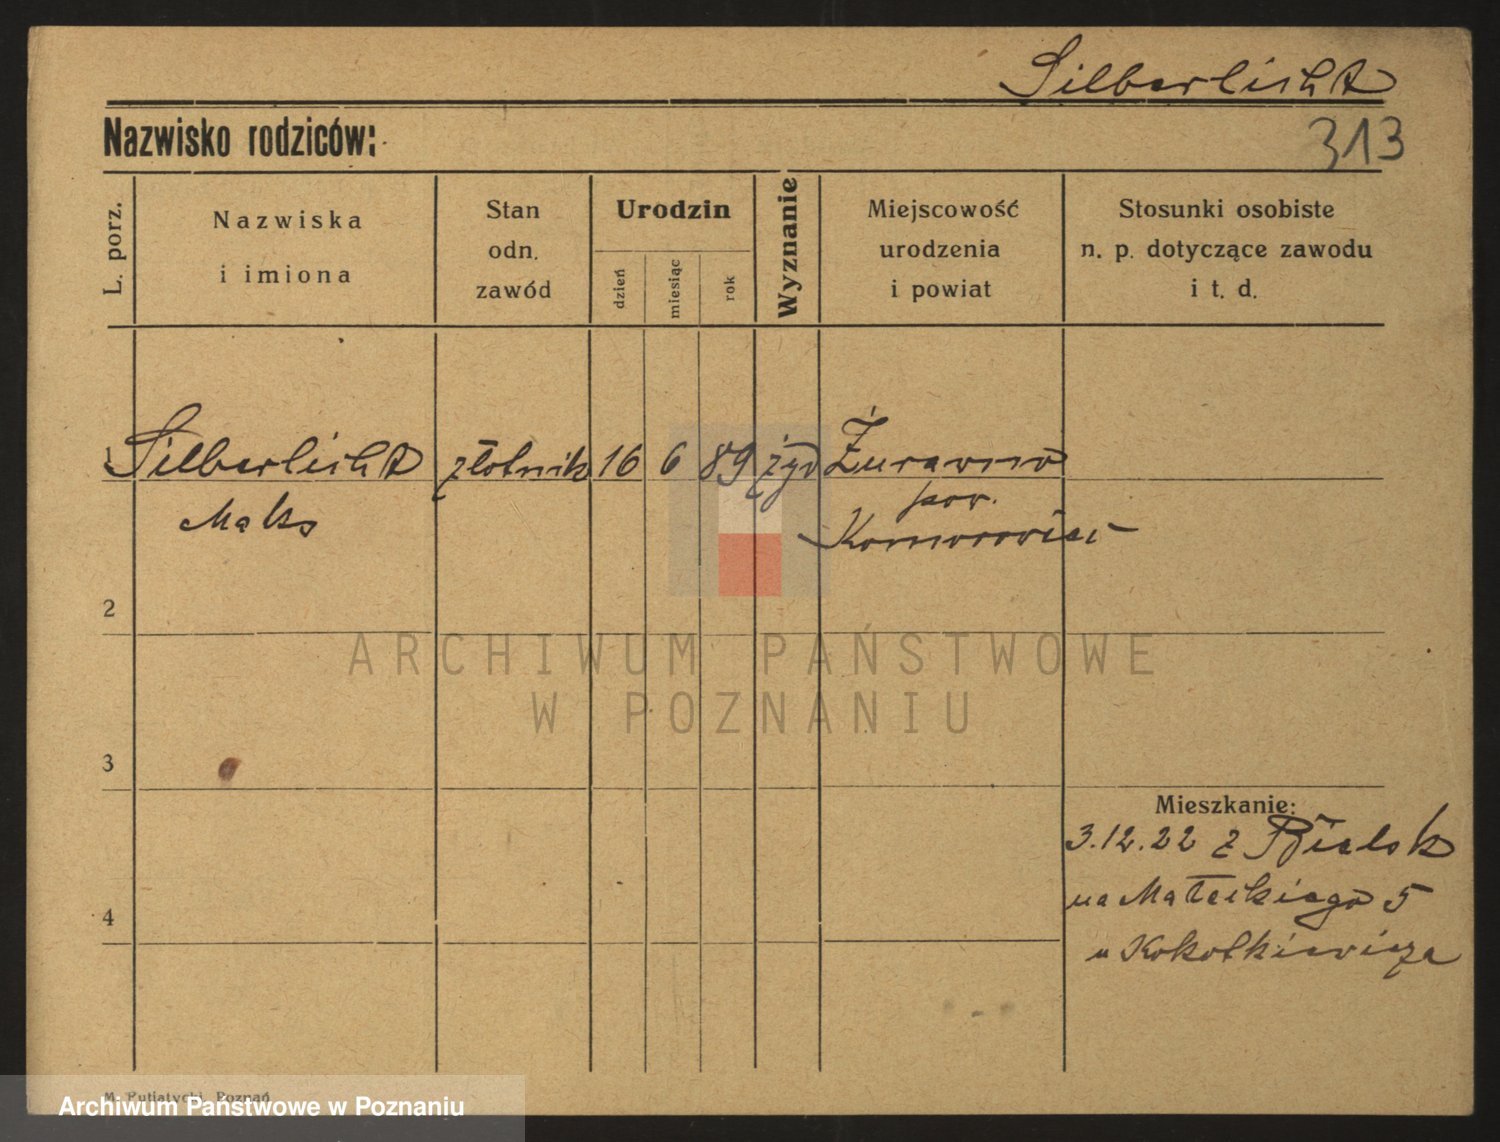 Silberlicht
Nazwisko rodziców:
313
L. porz.
Nazwiska
i imiona
Stan
odn.
zawód
Urodzin
dzień
miesiąc
rok
Wyznanie
Miejscowość
urodzenia
i powiat
Stosunki osobiste
n. p. dotyczące zawodu
i t. d.
1 Silberlicht złotnik 16 6 89 żyd Żurawno
Maks pow.
2
3
Mieszkanie:
3.12.22 z Bielsk
4
na Małeckiego 5
u
M. Putiatycki, Poznań
ARCHIWUM PAŃSTWOWE
W POZNANIU
Archiwum Państwowe w Poznaniu